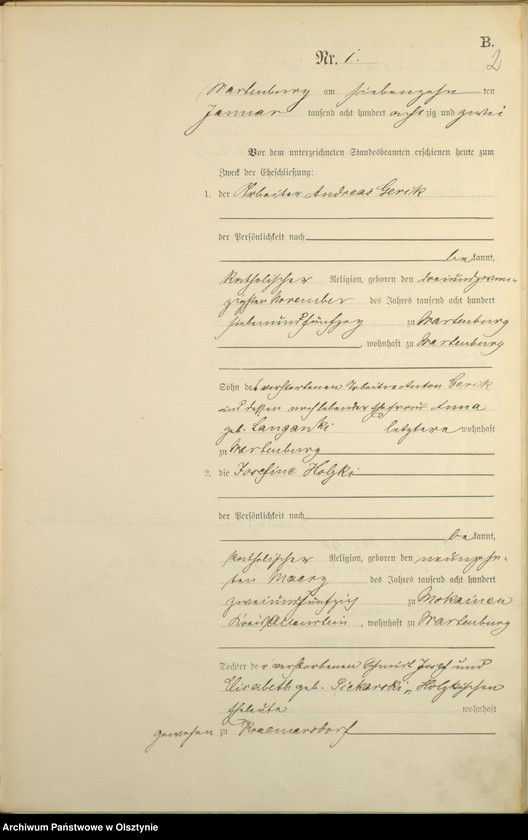 B.
2
Nr. 1.
Wartenburg am siebenzehn ten
Januar tausend acht hundert achtzig und zwei
Vor dem unterzeichneten Standesbeamten erschienen heute zum
Zweck der Eheschließung:
1. der Arbeiter Andreas Gerik
der Persönlichkeit nach
bekannt,
katholischer Religion, geboren den dreiundzwan-
zigsten November des Jahres tausend acht hundert
siebenundfünfzig zu Wartenburg
, wohnhaft zu Wartenburg
Sohn des verstorbenen Arbeiters Anton Gerik
und dessen noch lebender Ehefrau Anna
geb. Langanki letztere wohnhaft
zu Wartenburg
2. die Josefine Holzki
der Persönlichkeit nach
bekannt,
katholischer Religion, geboren den neunzehn-
ten Maerz des Jahres tausend acht hundert
zweiundfünfzig zu Mokainen
Kreis Allenstein, wohnhaft zu Wartenburg
Tochter der verstorbenen Schmidt Josef und
Elisabeth geb. Pickarski, Holzkischen
Eheleute wohnhaft
gewesen zu Kraemersdorf
Archiwum Państwowe w Olsztynie